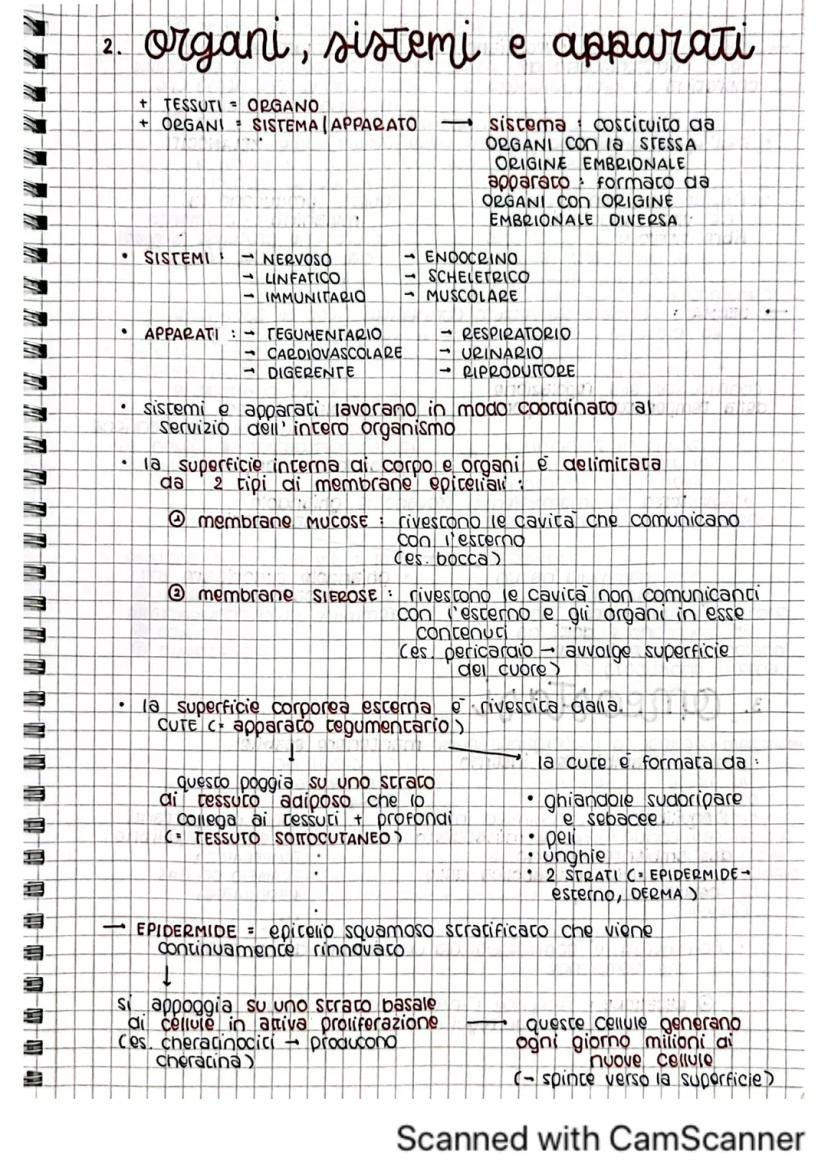 2. organi, sistemi e apparati
+ TESSUTI = ORGANO
+ ORGANI = SISTEMA/APPARATO → sistema : costituito da
ORGANI con la STESSA
ORIGINE EMBRIONALE
apparato : formato da
ORGANI con ORIGINE
EMBRIONALE DIVERSA
• SISTEMI : → NERVOSO → ENDOCRINO
→ LINFATICO → SCHELETRICO
→ IMMUNITARIO → MUSCOLARE
• APPARATI : → TEGUMENTARIO → RESPIRATORIO
→ CARDIOVASCOLARE → URINARIO
→ DIGERENTE → RIPRODUTTORE
• sistemi e apparati lavorano in modo coordinato al
servizio dell'intero organismo
• la superficie interna di corpo e organi è delimitata
da 2 tipi di membrane epiteliali :
① membrane MUCOSE : rivestono le cavità che comunicano
con l'esterno
(es. bocca)
② membrane SIEROSE : rivestono le cavità non comunicanti
con l'esterno e gli organi in esse
contenuti
(es. pericardio → avvolge superficie
del cuore)
• la superficie corporea esterna è rivestita dalla
CUTE (= apparato tegumentario)
↓
la cute è formata da :
questo poggia su uno strato
di tessuto adiposo che lo
collega ai tessuti + profondi
(= TESSUTO SOTTOCUTANEO)
• ghiandole sudoripare
e sebacee
• peli
• unghie
• 2 STRATI (= EPIDERMIDE→
esterno, DERMA)
→ EPIDERMIDE = epitelio squamoso stratificato che viene
continuamente rinnovato
↓
si appoggia su uno strato basale
di cellule in attiva proliferazione
(es. cheratinociti → producono
cheratina)
→ queste cellule generano
ogni giorno milioni di
nuove cellule
(→ spinte verso la superficie)
Scanned with CamScanner